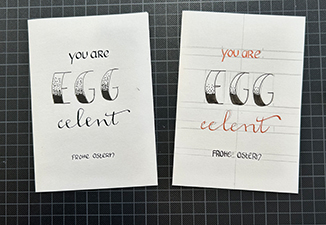 you are
EGG
celent
FROHE OSTERN
you are
EGG
celent
FROHE OSTERN